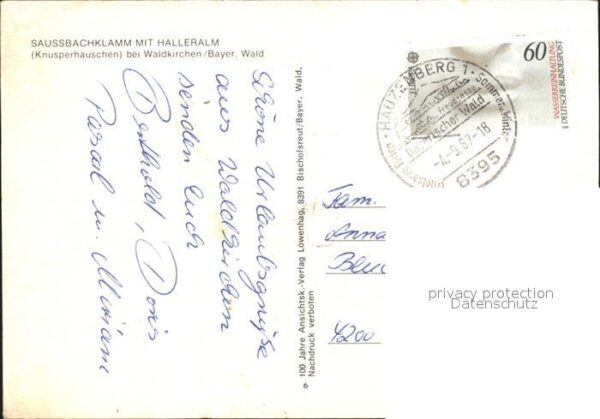 SAUSSBACHKLAMM MIT HALLERALM
(Knusperhäuschen) bei Waldkirchen/Bayer. Wald
Schöne Urlaubsgrüße
aus Waldkirchen
senden Euch
Berthold, Doris
Pascal u. Miriam
100 Jahre Ansichtsk.-Verlag Löwenhag, 8391 Bischofsreut/Bayer. Wald.
Nachdruck verboten
60
WASSERREINHALTUNG
DEUTSCHE BUNDESPOST
HAUZENBERG 1 · Sommer · Winter
Bayerischer Wald
-4.-9.87-18
8395
Fam.
Anna
4200
privacy protection
Datenschutz